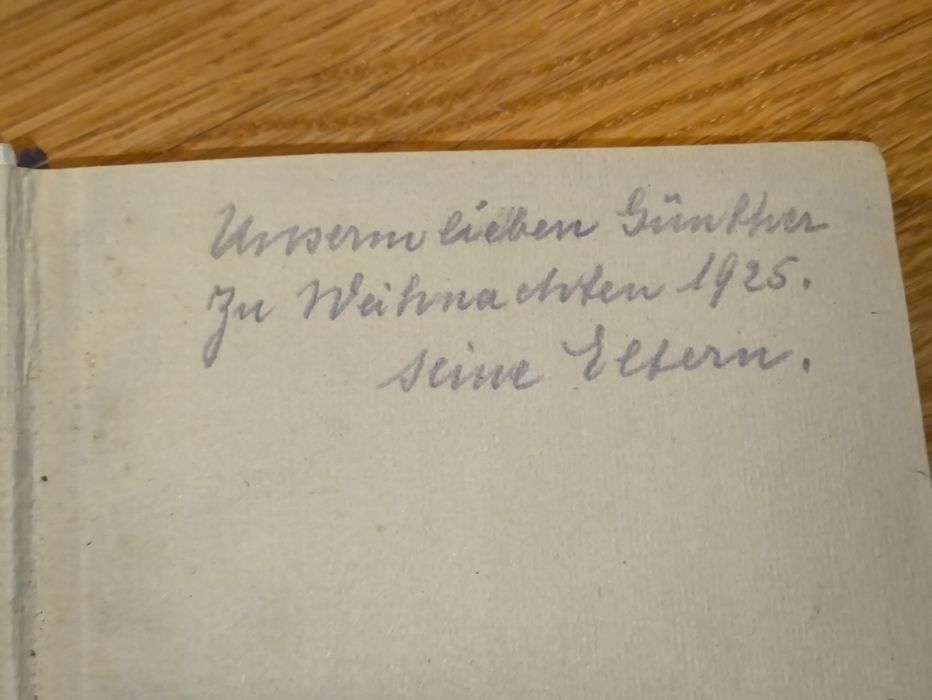 Unserm lieben Günther
Zu Weihnachten 1925.
seine Eltern.